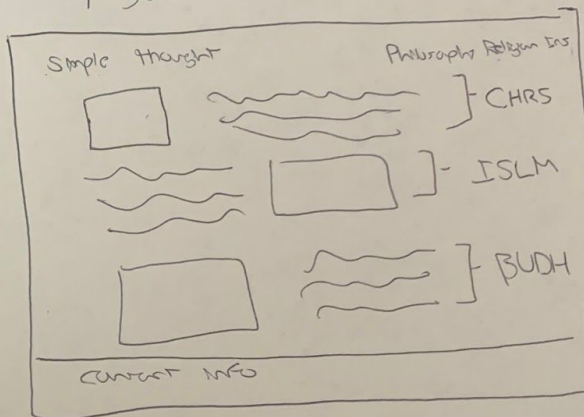 Simple thought Philosophy Religion Ins
CHRS
ISLM
BUDH
contact info